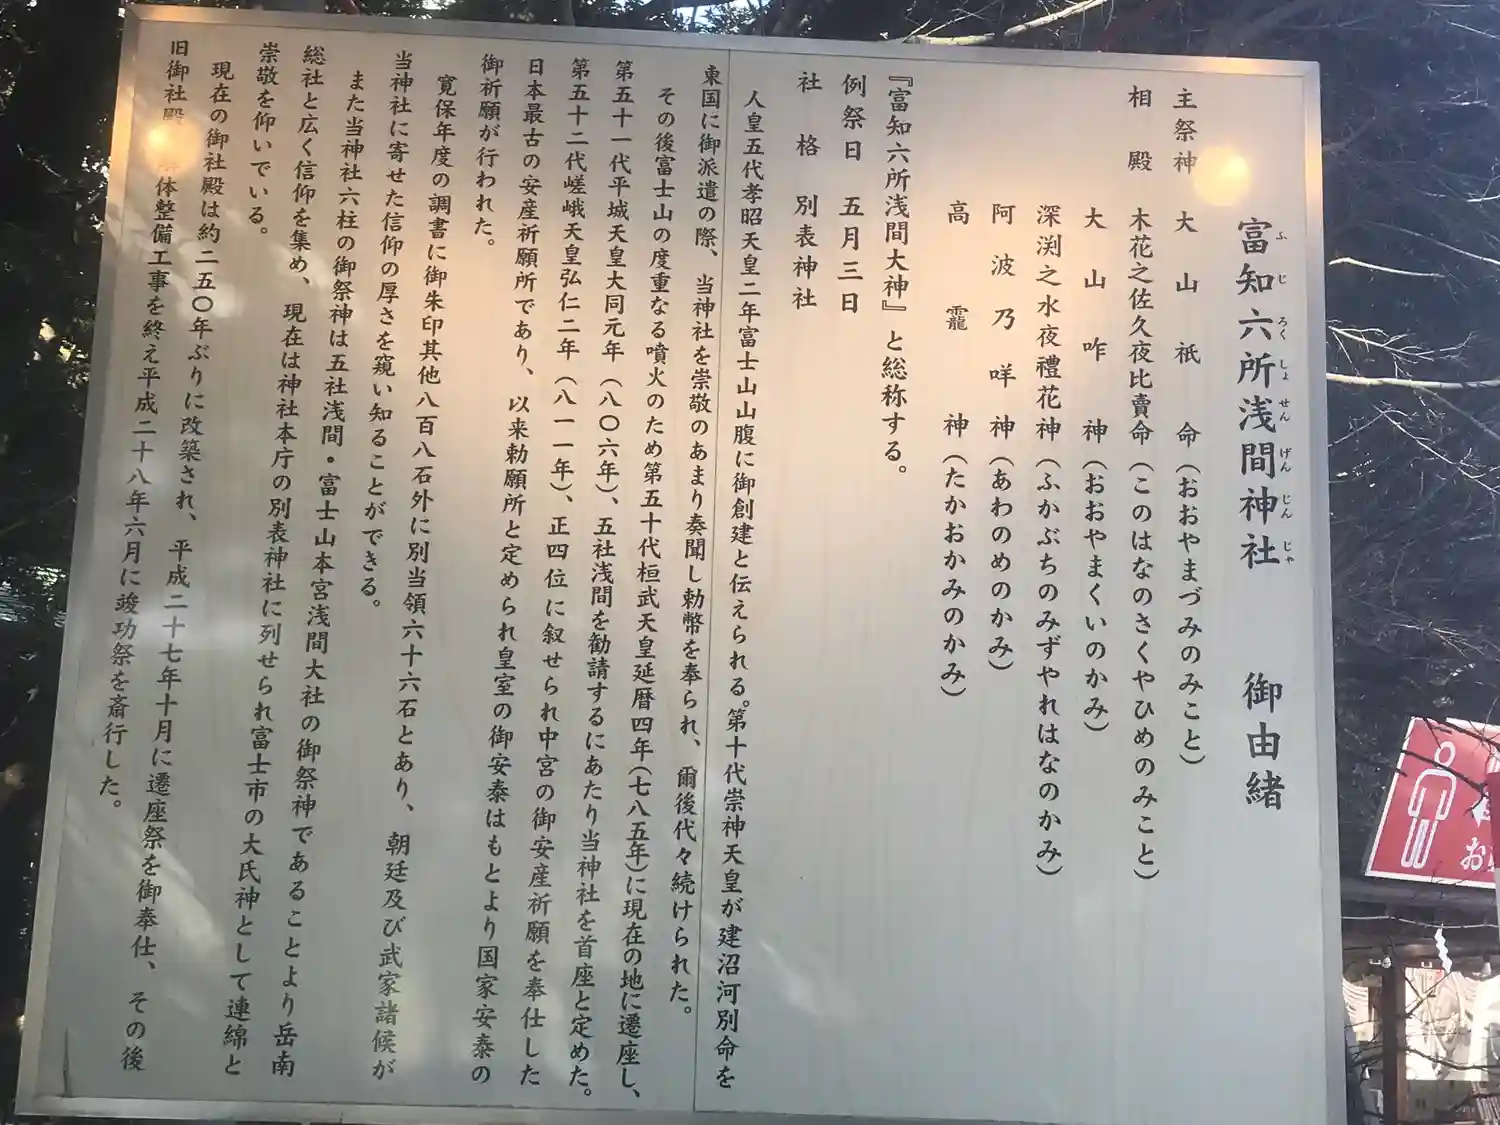 富知六所浅間神社　御由緒
ふじろくしょせんげんじんじゃ
主祭神　大山祇命（おおやまづみのみこと）
相殿　木花之佐久夜比賣命（このはなのさくやひめのみこと）
大山咋神（おおやまくいのかみ）
深渕之水夜禮花神（ふかぶちのみずやれはなのかみ）
阿波乃咩神（あわのめのかみ）
高龗神（たかおかみのかみ）
『富知六所浅間大神』と総称する。
例祭日　五月三日
社格　別表神社
人皇五代孝昭天皇二年富士山山腹に御創建と伝えられる。第十代崇神天皇が建沼河別命を
東国に御派遣の際、当神社を崇敬のあまり奏聞し勅幣を奉られ、爾後代々続けられた。
その後富士山の度重なる噴火のため第五十代桓武天皇延暦四年（七八五年）に現在の地に遷座し、
第五十一代平城天皇大同元年（八〇六年）、五社浅間を勧請するにあたり当神社を首座と定めた。
第五十二代嵯峨天皇弘仁二年（八一一年）、正四位に叙せられ中宮の御安産祈願を奉仕した
日本最古の安産祈願所であり、以来勅願所と定められ皇室の御安泰はもとより国家安泰の
御祈願が行われた。
寛保年度の調書に御朱印其他八百八石外に別当領六十六石とあり、朝廷及び武家諸候が
当神社に寄せた信仰の厚さを窺い知ることができる。
また当神社六柱の御祭神は五社浅間・富士山本宮浅間大社の御祭神であることより岳南
総社と広く信仰を集め、現在は神社本庁の別表神社に列せられ富士市の大氏神として連綿と
崇敬を仰いでいる。
現在の御社殿は約二五〇年ぶりに改築され、平成二十七年十月に遷座祭を御奉仕、その後
旧御社殿　体整備工事を終え平成二十八年六月に竣功祭を斎行した。
お